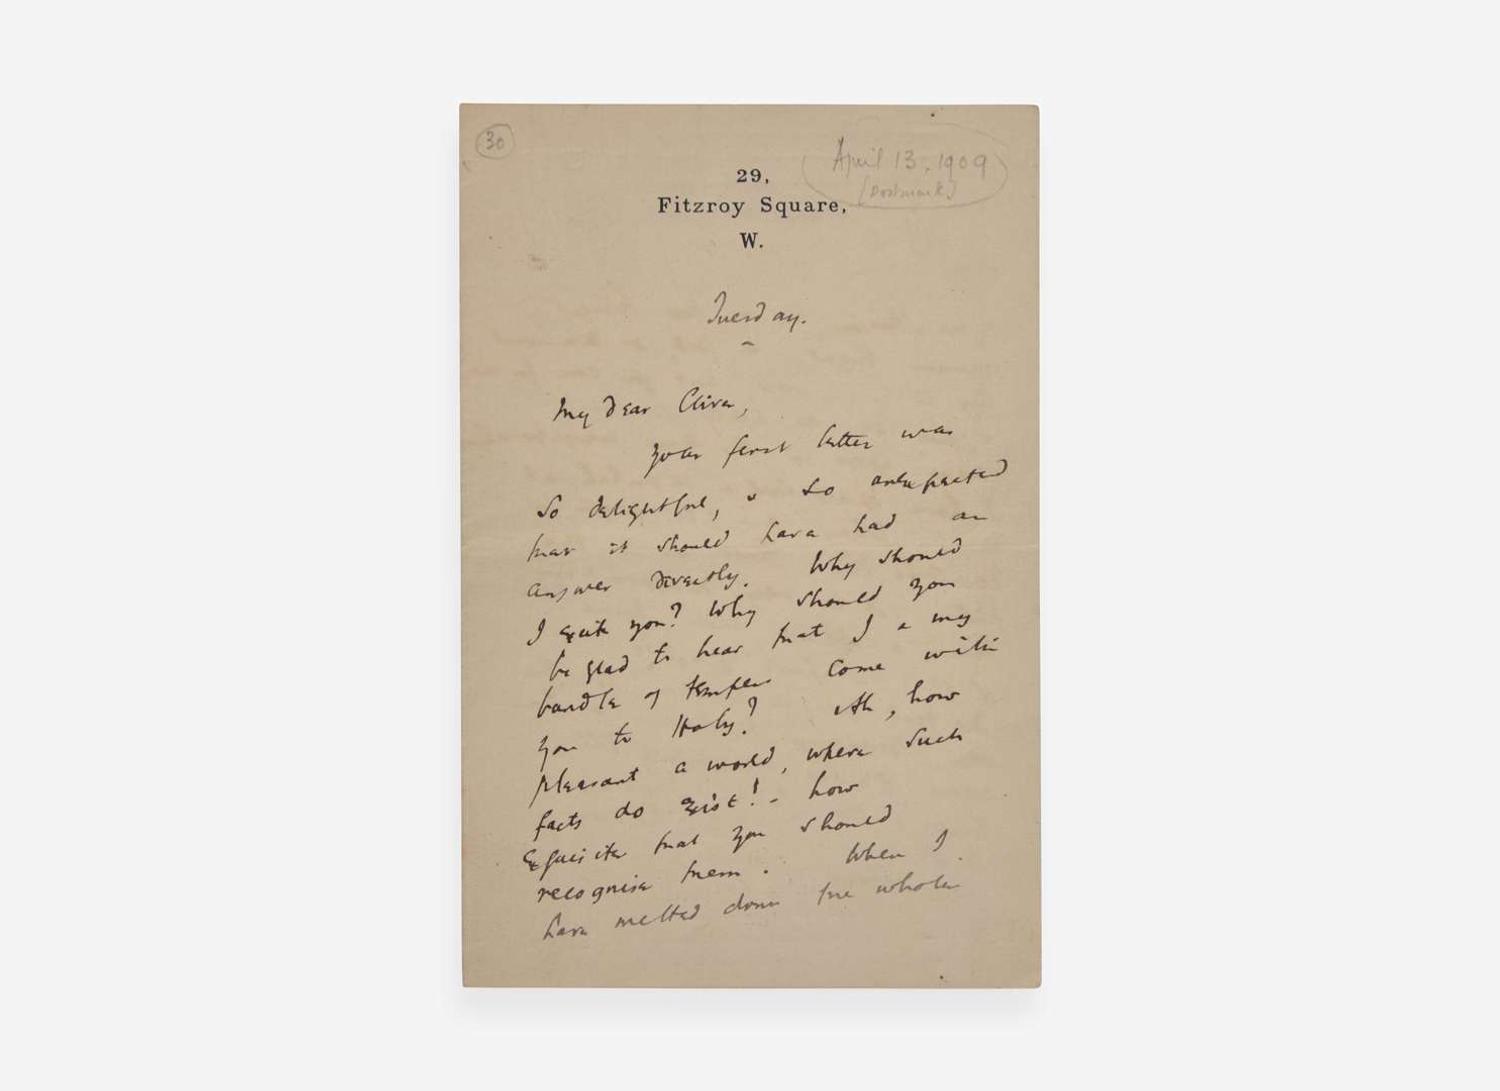 30
April 13. 1909
[postmark]
29,
Fitzroy Square,
W.
Tuesday.
My Dear Clive,
Your first letter was
so delightful, & so unexpected
that it should have had an
answer directly. Why should
I excite you? Why should you
be glad to hear that I a my
bundle of tempers come with
you to Italy? Ah, how
pleasant a world, where such
facts do exist! - how
exquisite that you should
recognise them. When I
have melted down the whole